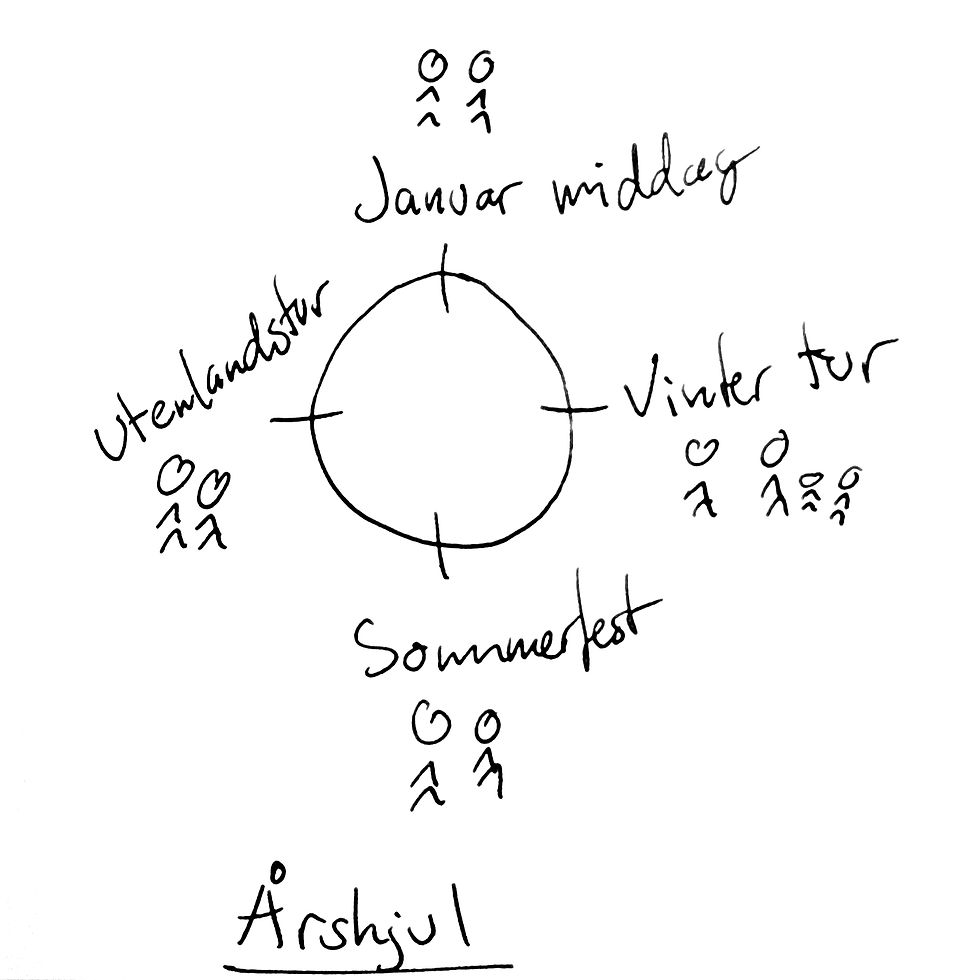 Januar middag
Utenlandstur
Vinter tur
Sommerfest
Årshjul